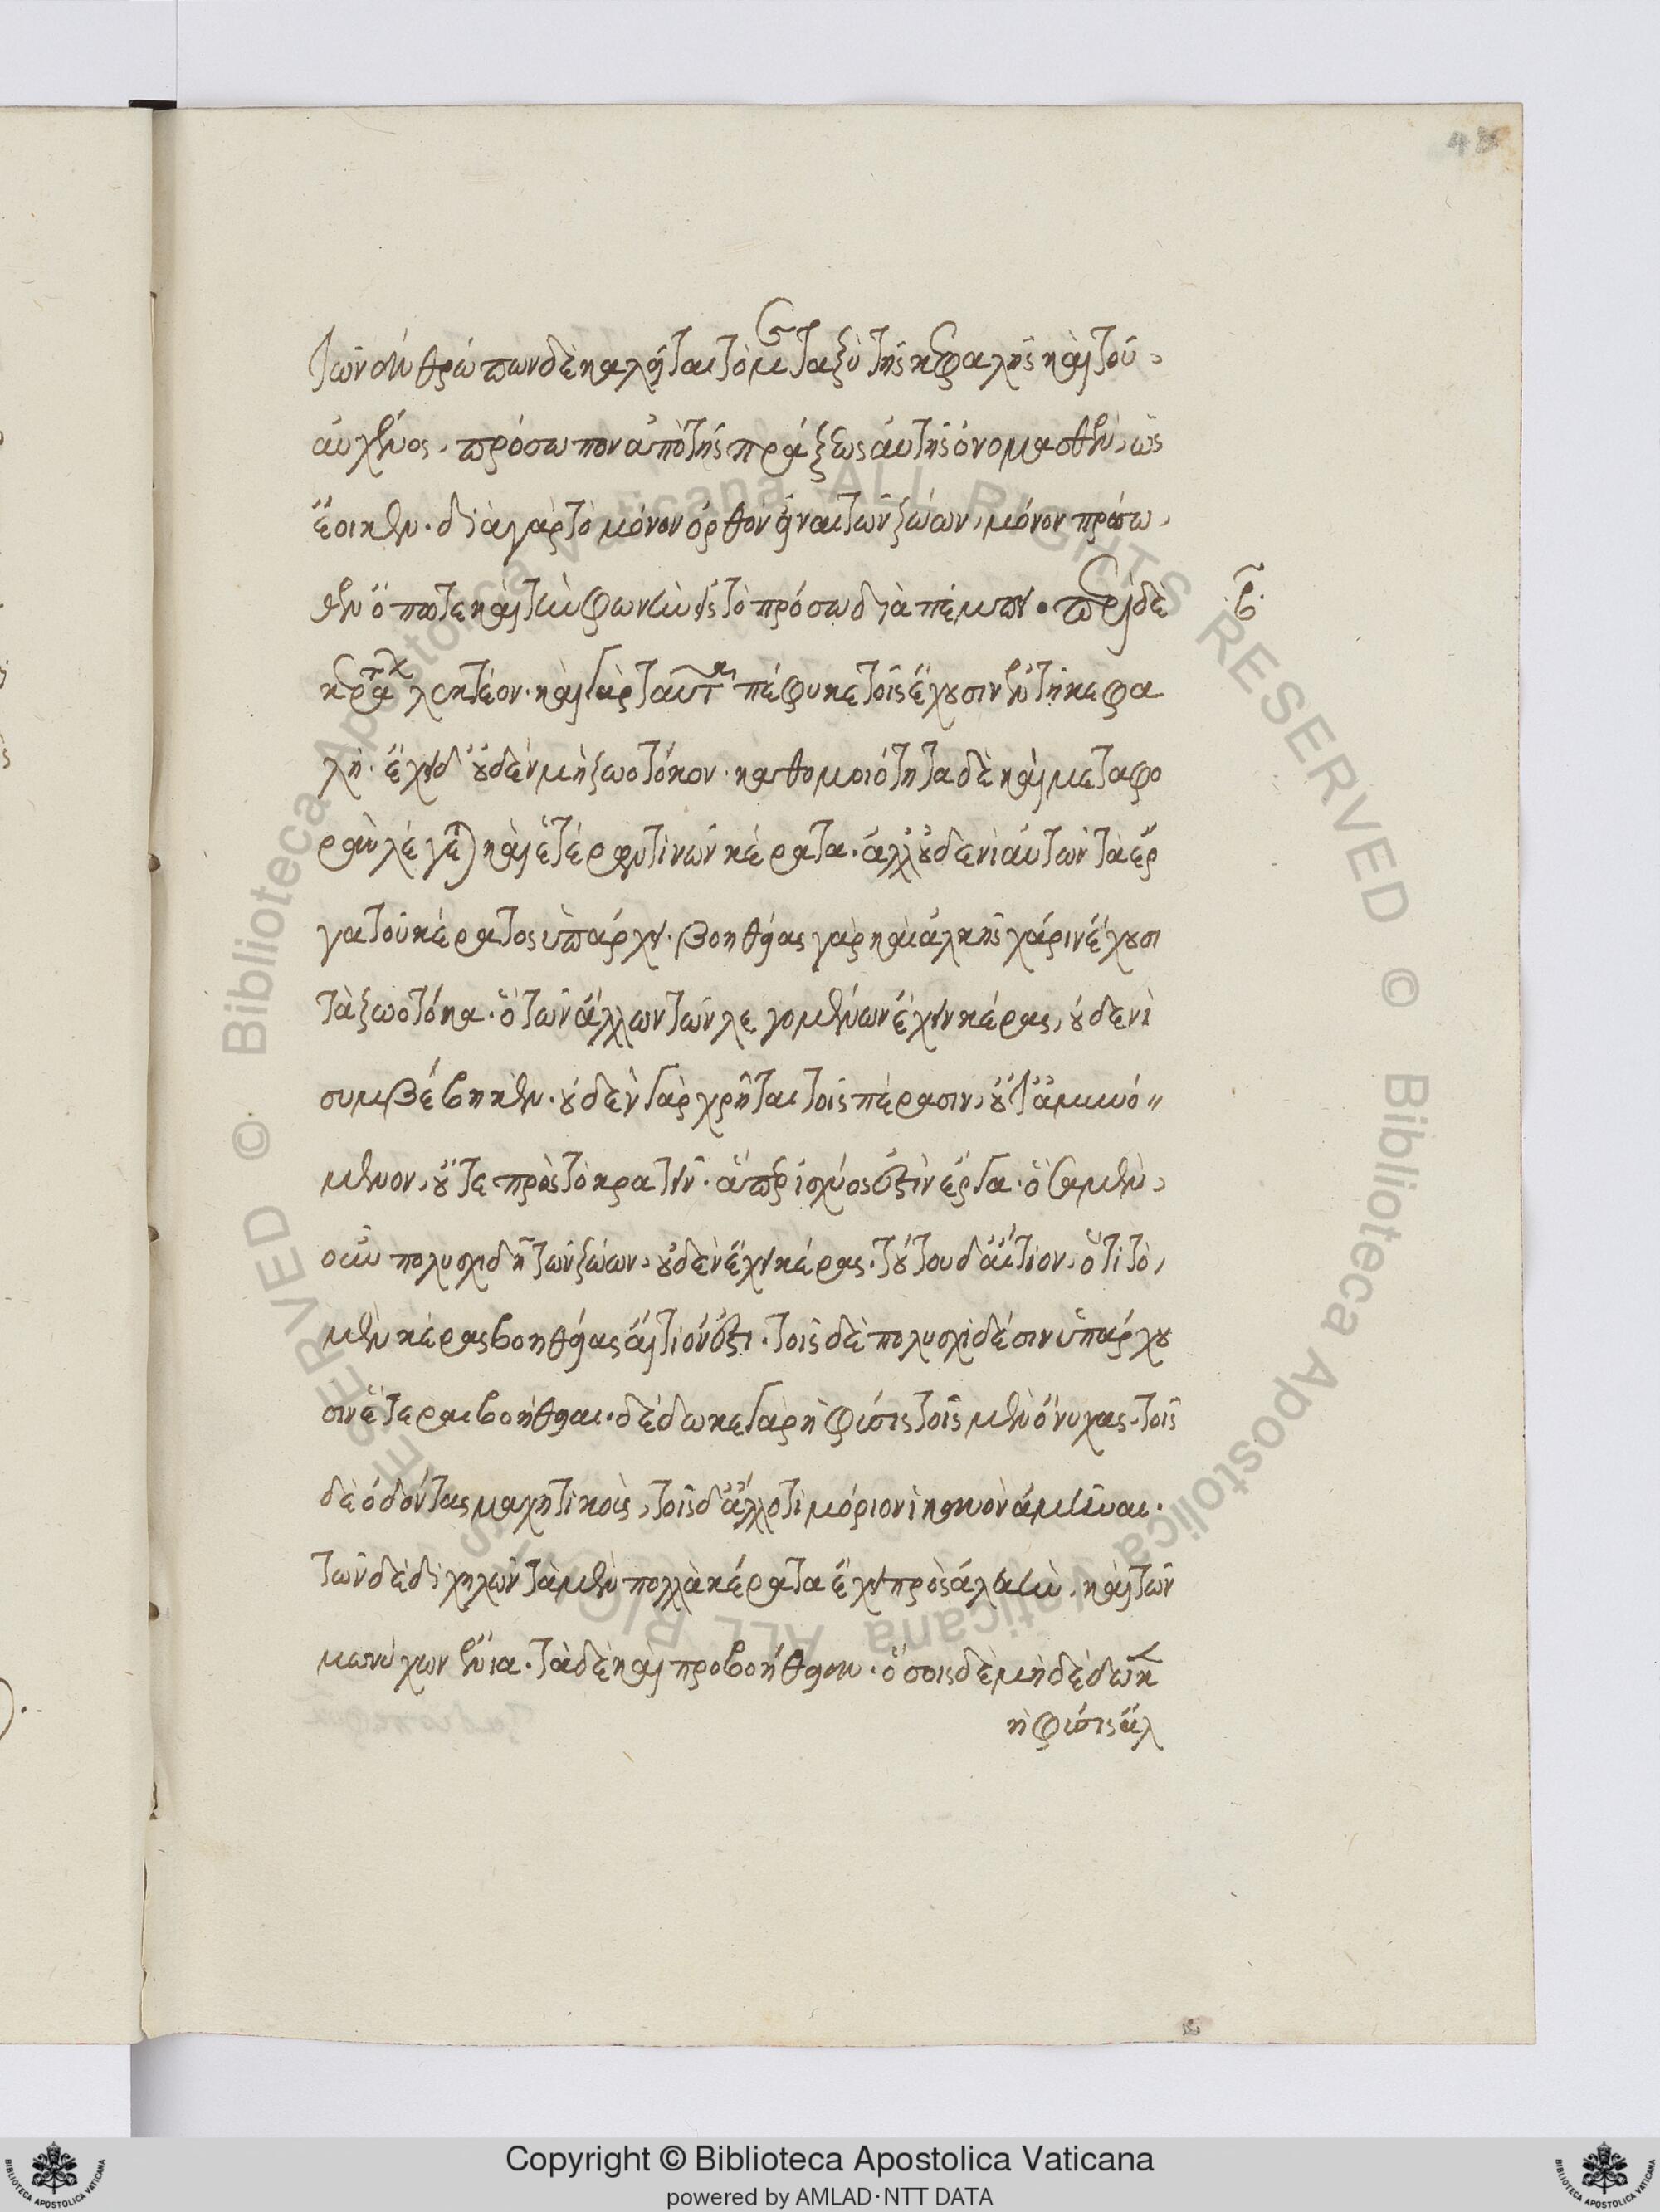 48
τῶν ἀνθρώπων δὲ καλεῖται τὸ μεταξὺ τῆς κεφαλῆς καὶ τοῦ
αὐχένος, πρόσωπον ἀπὸ τῆς πράξεως αὐτῆς ὀνομασθὲν, ὡς
ἔοικεν. διὰ γὰρ τὸ μόνον ὀρθὸν εἶναι τῶν ζώων, μόνον πρόσω,
θεν ὄπωπε καὶ τὴν φωνὴν εἰς τὸ πρόσω διαπέμπει. περὶ δὲ
.β.
κεράτων λεκτέον. καὶ γὰρ ταῦτα πέφυκε τοῖς ἔχουσιν ἐν τῇ κεφα
λῇ. ἔχει δ' οὐδὲν μὴ ζωοτόκον. καθ' ὁμοιότητα δὲ καὶ μεταφο
ρὰν λέγεται καὶ ἑτέρων τινῶν κέρατα. ἀλλ' οὐδενὶ αὐτῶν τὰ ἔρ
γα τοῦ κέρατος ὑπάρχει. βοηθείας γὰρ καὶ ἀλκῆς χάριν ἔχουσι
τὰ ζωοτόκα. ὃ τῶν ἄλλων τῶν λεγομένων ἔχειν κέρας, οὐδενὶ
συμβέβηκεν. οὐδὲν γὰρ χρῆται τοῖς κέρασιν, οὔτ' ἀμυνό"
μενον, οὔτε πρὸς τὸ κρατεῖν. ἅπερ ἰσχύος ἐστὶν ἔργα. ὅσα μὲν,
οὖν πολυσχιδῆ τῶν ζώων, οὐδὲν ἔχει κέρας. τούτου δ' αἴτιον, ὅτι τὸ,
μὲν κέρας βοηθείας αἴτιόν ἐστι. τοῖς δὲ πολυσχιδέσιν ὑπάρχου
σιν ἕτεραι βοήθειαι. δέδωκε γὰρ ἡ φύσις τοῖς μὲν ὄνυχας, τοῖς
δὲ ὀδόντας μαχητικοὺς, τοῖς δ' ἄλλο τι μόριον ἱκανὸν ἀμῦναι.
τῶν δὲ διχηλῶν τὰ μὲν πολλὰ κέρατα ἔχει πρὸς ἀλκὴν, καὶ τῶν
μωνύχων ἔνια. τὰ δὲ καὶ προβοήθειαν. ὅσοις δὲ μὴ δέδωκεν
ἡ φύσις ἄλ
Copyright © Biblioteca Apostolica Vaticana
powered by AMLAD·NTT DATA